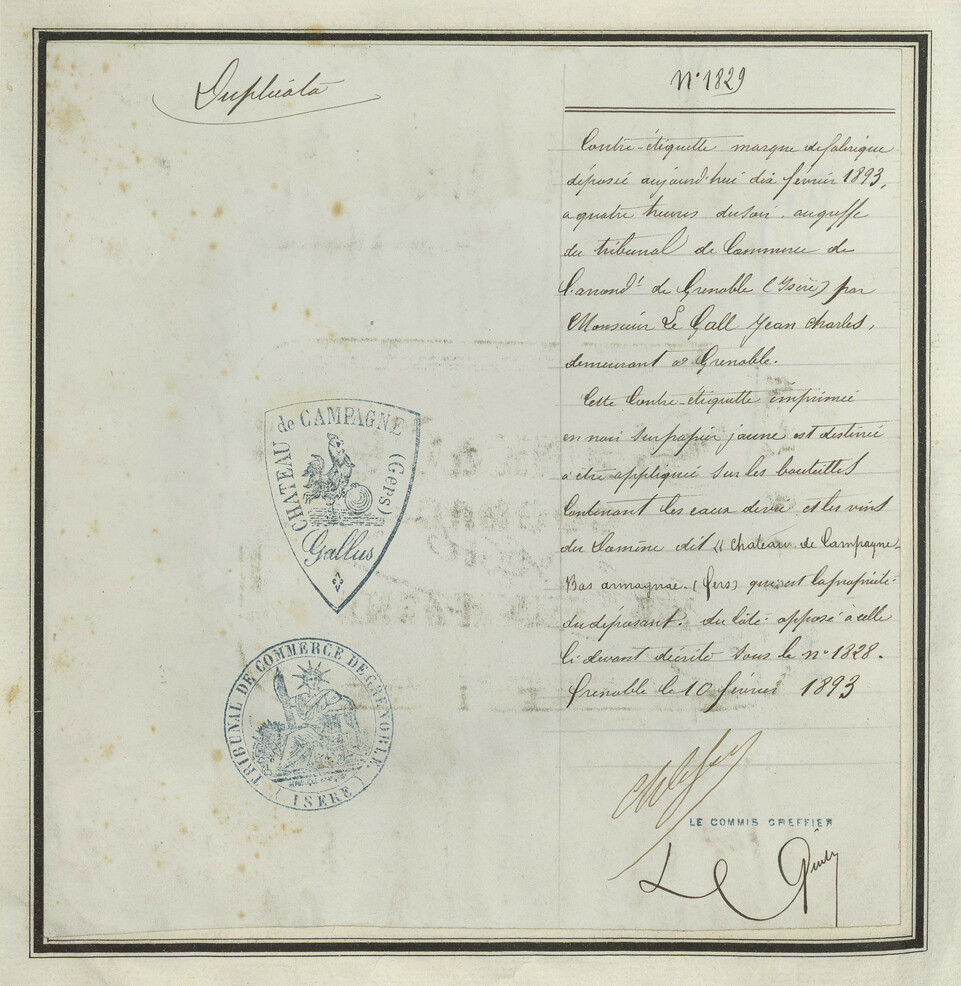 Duplicata
N° 1829
Contre-étiquette marque de fabrique
déposée aujourd'hui dix février 1893,
a quatre heures du soir, au greffe
du tribunal de Commerce de
l'arrond.t de Grenoble (Isère) par
Monsieur Le Gall Jean Charles,
demeurant a Grenoble.
Cette Contre-étiquette imprimée
en noir sur papier jaune est destinée
a être appliquée sur les bouteilles
Contenant les eaux de vie et les vins
du Domaine dit "Chateau de Campagne-
Bas armagnac. (Gers) qui est la propriété
du déposant. du côté opposé a celle
Ci devant décrite sous le n° 1828.
Grenoble le 10 février 1893
CHATEAU de CAMPAGNE (Gers)
Gallus
TRIBUNAL DE COMMERCE DE GRENOBLE
(ISERE)
LE COMMIS GREFFIER